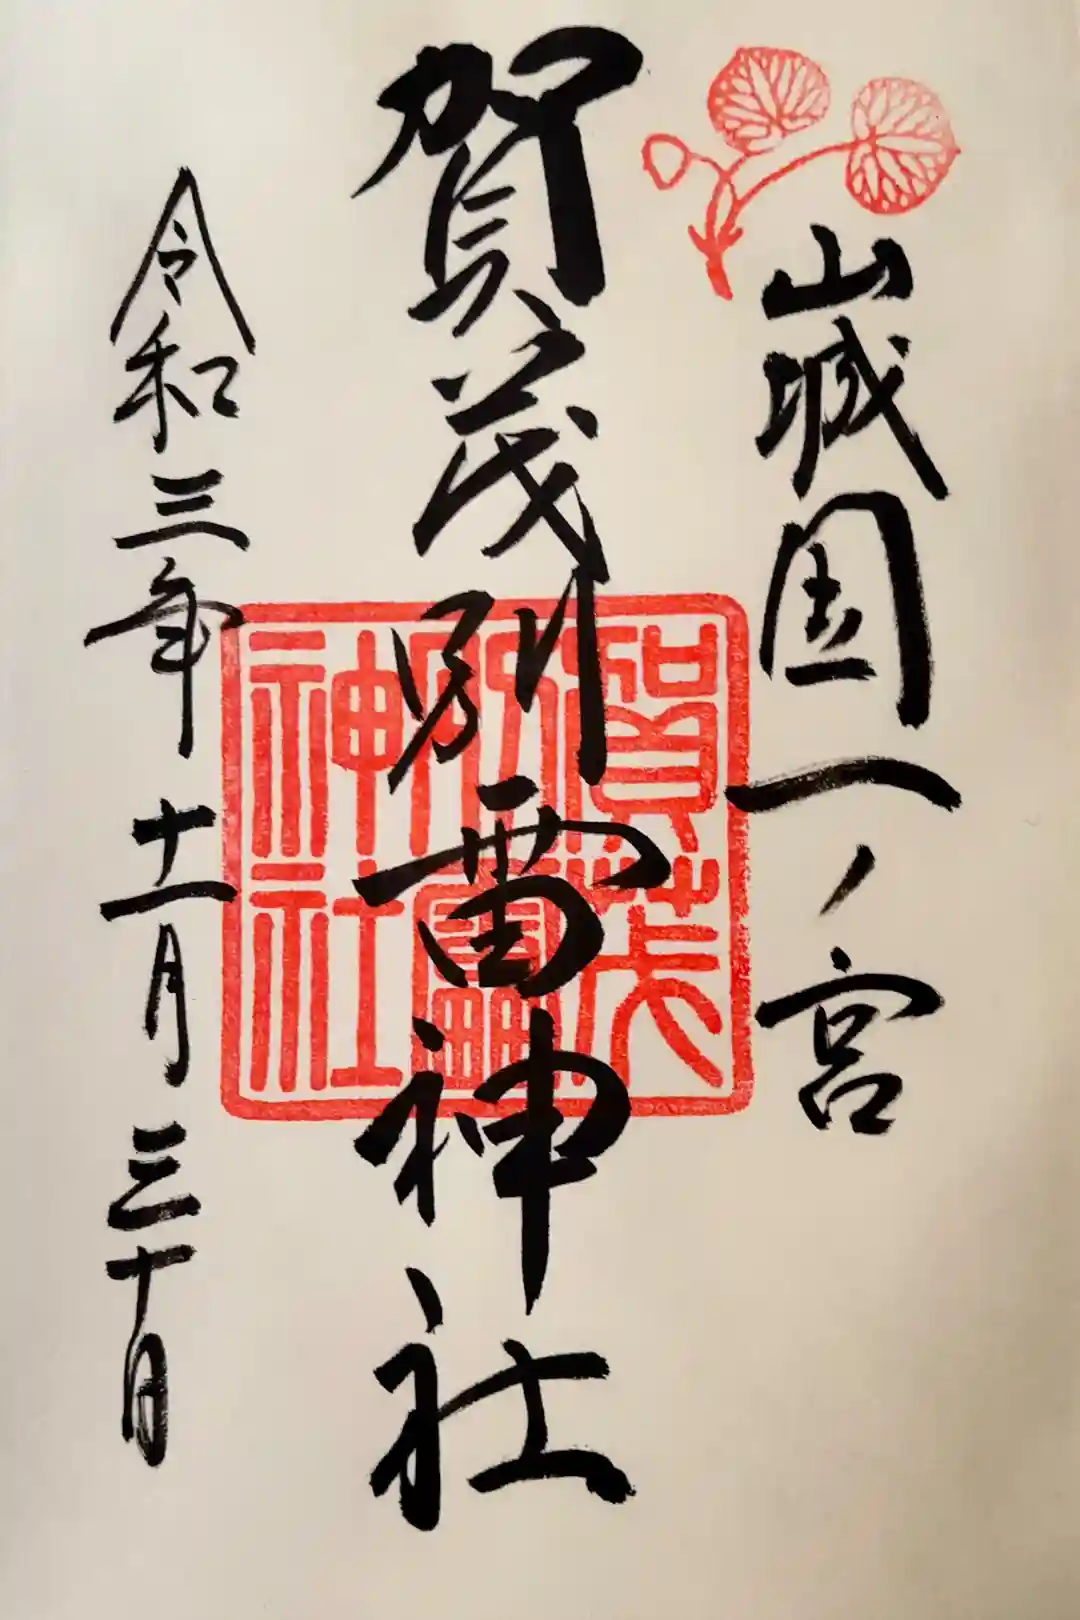 山城国一ノ宮
賀茂別雷神社
賀茂
別雷
神社
令和三年十一月三十日